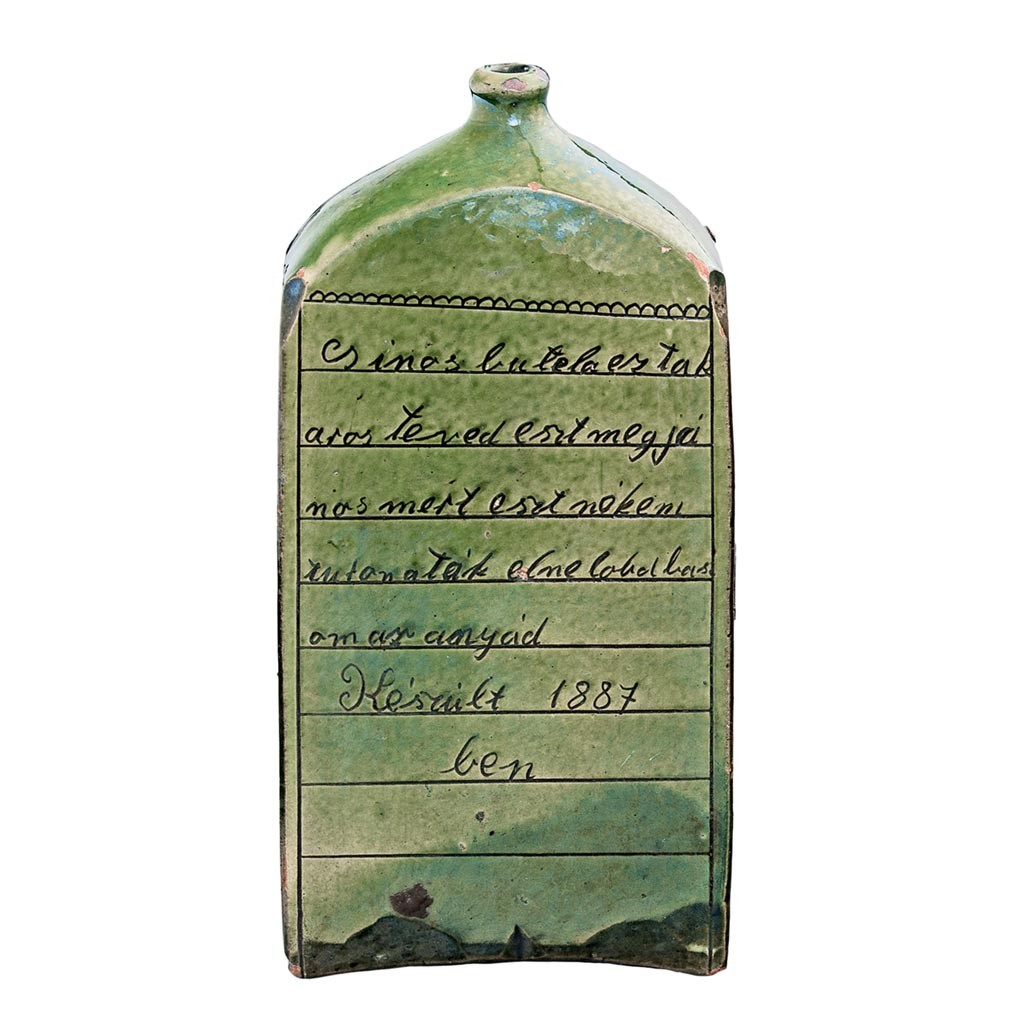 Csinos butela ez tak
aros teved eszt meg já
nos mert eszt nékem
tutanaták elne lobd bas
om az anyád
Készült 1887
ben